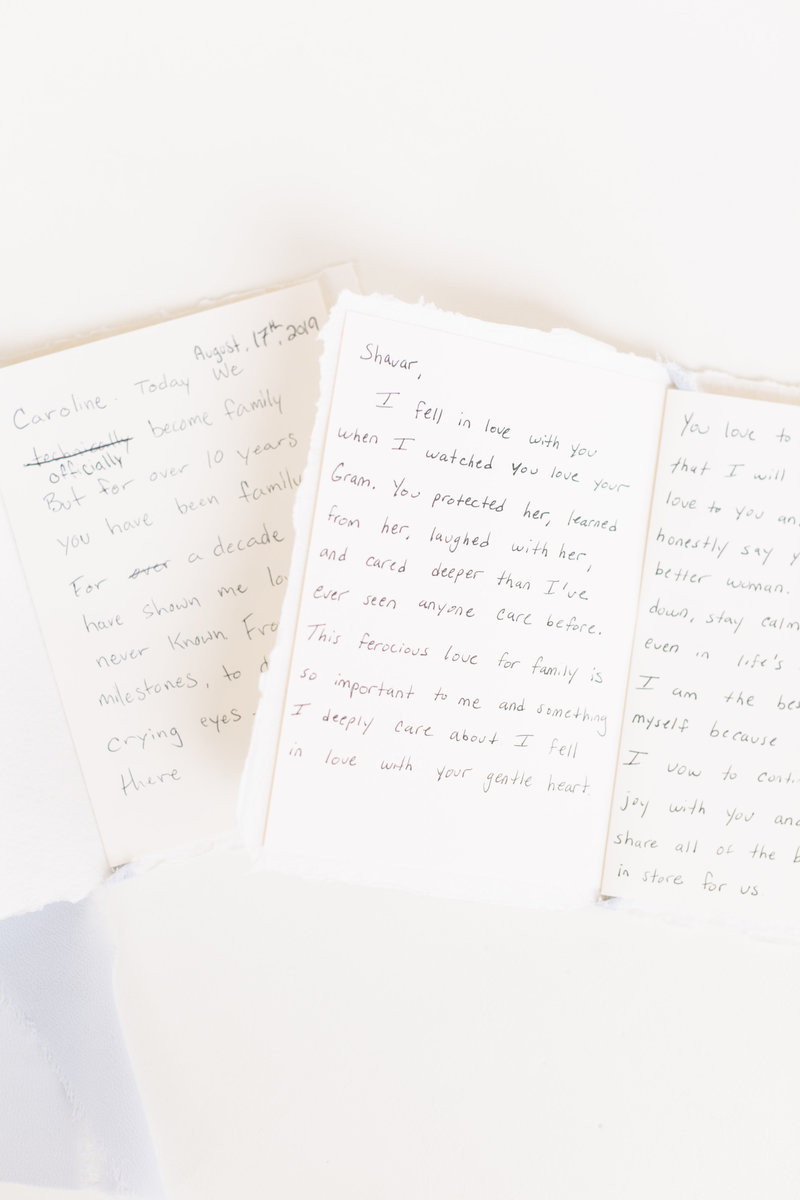 August, 17th, 2019
Caroline. Today We
technically become family
officially
But for over 10 years
you have been family
For over a decade
have shown me
never Known.
milestones, to
crying eyes
there
Shavar,
I fell in love with you
when I watched you love your
Gram. You protected her, learned
from her, laughed with her,
and cared deeper than I've
ever seen anyone care before.
This ferocious love for family is
so important to me and something
I deeply care about. I fell
in love with your gentle heart.
You love to
that I will
love to you
honestly say
better woman.
down, stay
even in life's
I am the
myself because
I vow to
joy with you
share all of the
in store for us.